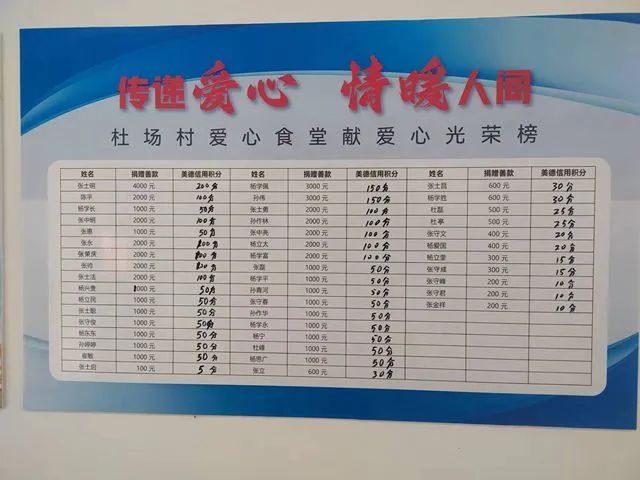 传递爱心 情暖人间
杜场村爱心食堂献爱心光荣榜
姓名 捐赠善款 美德信用积分 姓名 捐赠善款 美德信用积分 姓名 捐赠善款 美德信用积分
张士明 4000 元 200分 杨学佩 3000 元 150分 张士昌 600 元 30分
陈平 2000 元 100分 孙伟 3000 元 150分 杨学胜 600 元 30分
杨学长 1000 元 50分 张士勇 2000 元 100分 杜磊 500 元 25分
张中明 2000 元 100分 孙作林 2000 元 100分 杜亭 500 元 25分
张惠 1000 元 50分 张中亮 2000 元 100分 张守文 400 元 20分
张永 2000 元 100分 杨立太 2000 元 100分 杨爱国 400 元 20分
张荣庆 2000 元 100分 杨学富 2000 元 100分 杨立奎 300 元 15分
张帅 2000 元 100分 张磊 1000 元 50分 张守成 300 元 15分
张士法 2000 元 100分 杨学平 1000 元 50分 张守峰 200 元 10分
杨兴贵 1000 元 50分 孙青河 1000 元 50分 张守君 200 元 10分
杨立民 1000 元 50分 张守春 1000 元 50分 张金祥 200 元 10分
张士聪 1000 元 50分 孙作华 1000 元 50分
张守俊 1000 元 50分 杨学永 1000 元 50分
杨东东 1000 元 50分 杨宁 1000 元 50分
孙婷婷 1000 元 50分 杜峰 1000 元 50分
崔敏 1000 元 50分 杨思广 1000 元 50分
张士启 100 元 5分 张立 600 元 30分